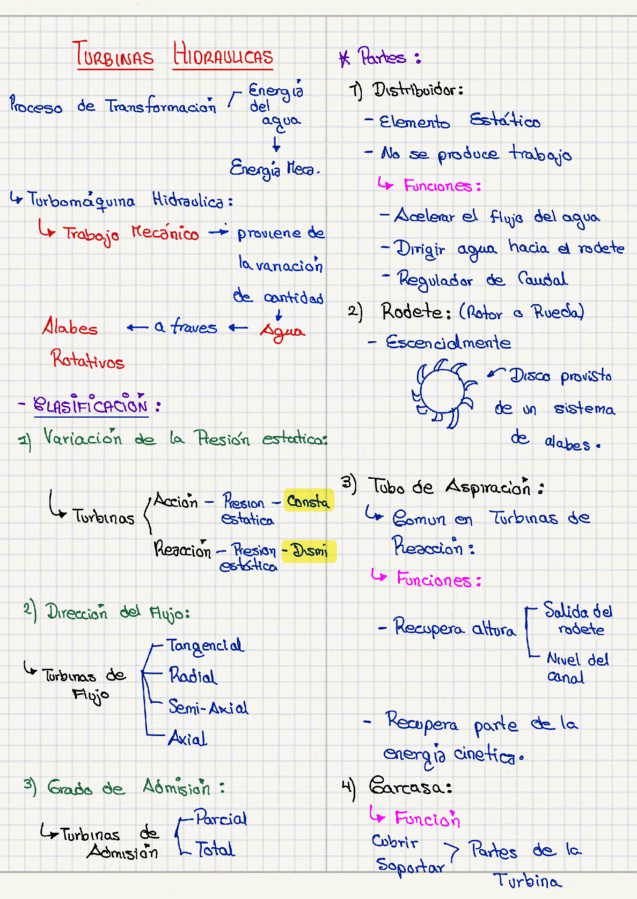 TURBINAS HIDRAULICAS
Proceso de Transformación
Energía
del
agua
↓
Energía Meca.
↳ Turbomáquina Hidraulica:
↳ Trabajo Mecánico → proviene de
la variación
de cantidad
↓
Alabes ← a traves ← Agua
Rotativos
- CLASIFICACIÓN:
1) Variación de la Presión estatica:
↳ Turbinas
Acción - Presion - Consta
estatica
Reacción - Presion - Dismi
estática
2) Dirección del Flujo:
↳ Turbinas de
Flujo
Tangencial
Radial
Semi-Axial
Axial
3) Grado de Admisión:
↳ Turbinas de
Admisión
Parcial
Total
* Partes:
1) Distribuidor:
- Elemento Estático
- No se produce trabajo
↳ Funciones:
- Acelerar el flujo del agua
- Dirigir agua hacia el rodete
- Regulador de Caudal
2) Rodete: (Rotor o Rueda)
- Escencialmente
Disco provisto
de un sistema
de alabes.
3) Tubo de Aspiración:
↳ Comun en Turbinas de
Reacción:
↳ Funciones:
- Recupera altura
Salida del
rodete
Nivel del
canal
- Recupera parte de la
energía cinetica.
4) Carcasa:
↳ Función
Cubrir
Soportar > Partes de la
Turbina